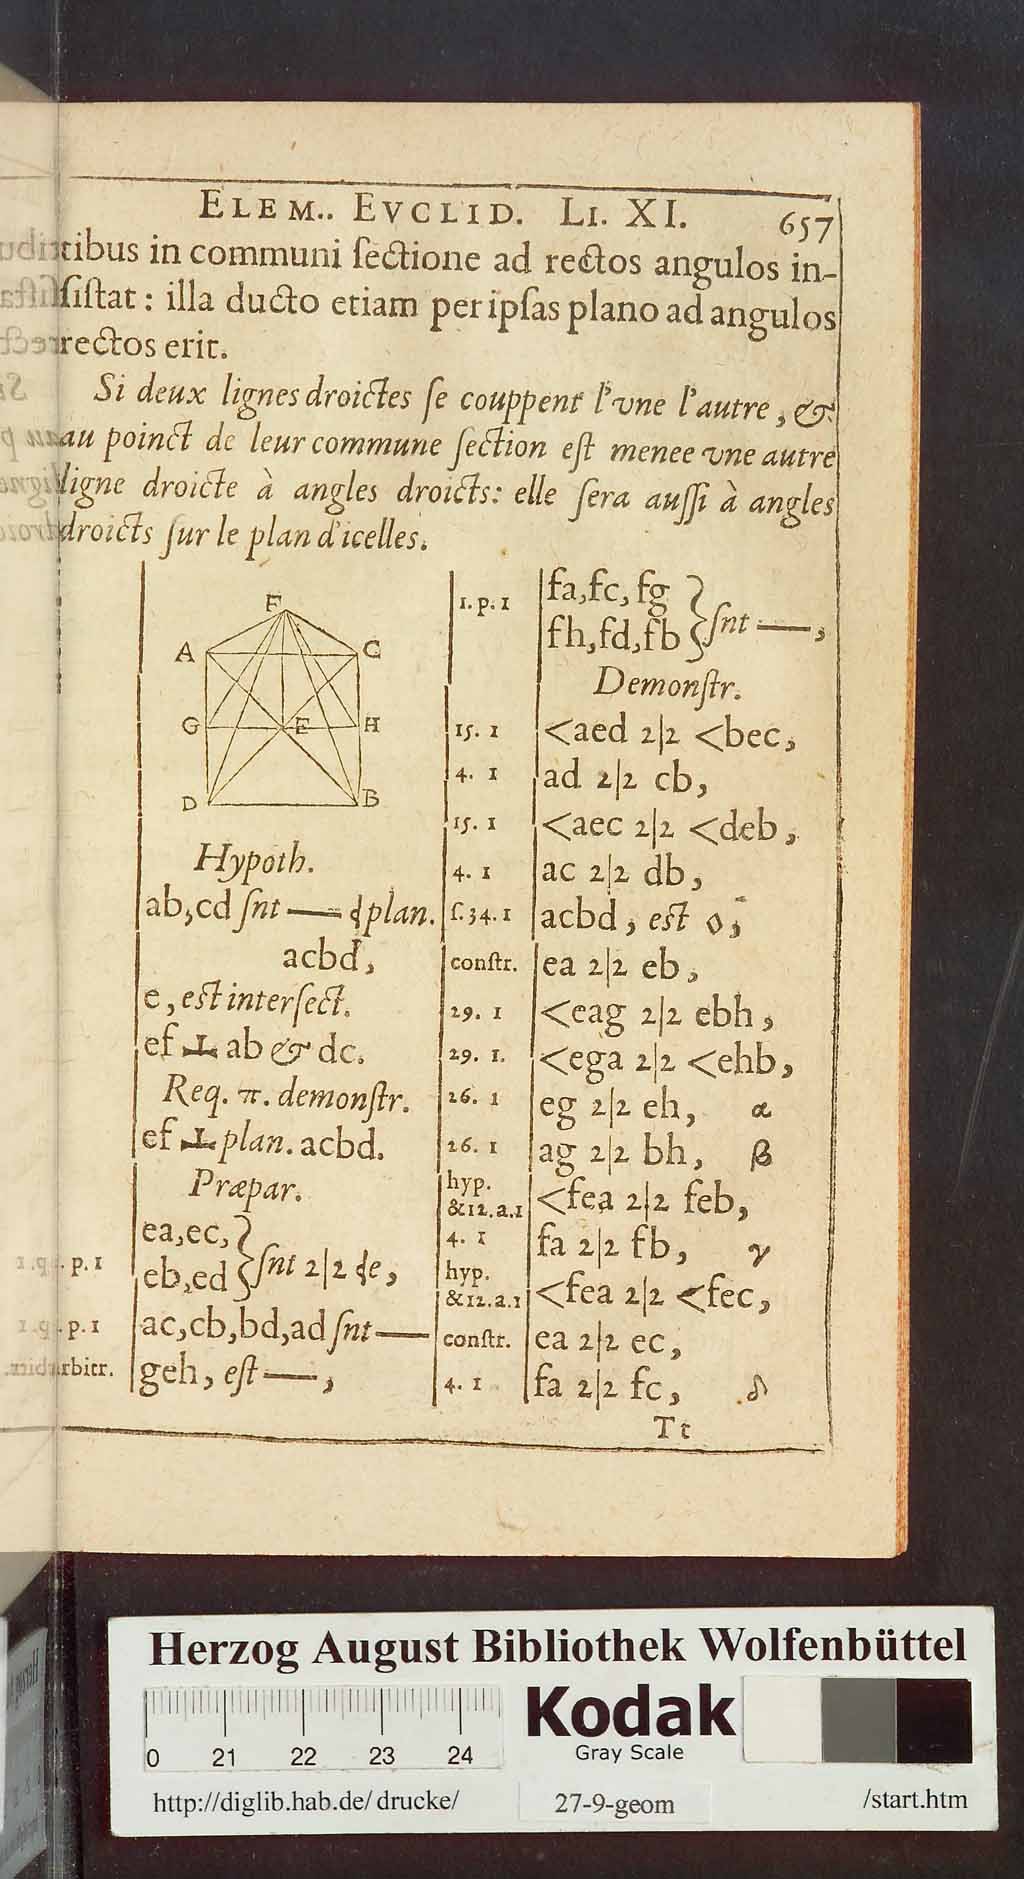 ELEM.. EVCLID. LI. XI. 657
tibus in communi sectione ad rectos angulos in-
sistat: illa ducto etiam per ipsas plano ad angulos
rectos erit.
Si deux lignes droictes se couppent l'vne l'autre, &
au poinct de leur commune section est menee vne autre
ligne droicte à angles droicts: elle sera aussi à angles
droicts sur le plan d'icelles.
F
A C
G E H
D B
Hypoth.
ab,cd snt — plan.
acbd,
e, est intersect.
ef ⊥ ab & dc.
Req. π. demonstr.
ef ⊥ plan. acbd.
Præpar.
ea,ec,
eb,ed } snt 2|2 de,
p. 1
p. 1 ac,cb,bd,ad snt —
rbitr. geh, est —,
1. p. 1 fa,fc,fg
fh,fd,fb } snt —,
Demonstr.
15. 1 <aed 2|2 <bec,
4. 1 ad 2|2 cb,
15. 1 <aec 2|2 <deb,
4. 1 ac 2|2 db,
s. 34. 1 acbd, est ◊,
constr. ea 2|2 eb,
29. 1 <eag 2|2 ebh,
29. 1. <ega 2|2 <ehb,
26. 1 eg 2|2 eh, α
26. 1 ag 2|2 bh, β
hyp.
&12.a.1 <fea 2|2 feb,
4. 1 fa 2|2 fb, γ
hyp.
&12.a.1 <fea 2|2 <fec,
constr. ea 2|2 ec,
4. 1 fa 2|2 fc, δ
Tt
Herzog August Bibliothek Wolfenbüttel
0 21 22 23 24
Kodak
Gray Scale
http://diglib.hab.de/drucke/ 27-9-geom /start.htm